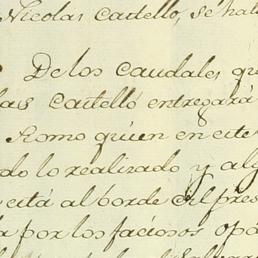 Nicolas Castello, se hal
De los caudales qu
las Castelló entregará
Como quien en este
do lo realizado y al
está al borde del pres
a por los facciosos opá